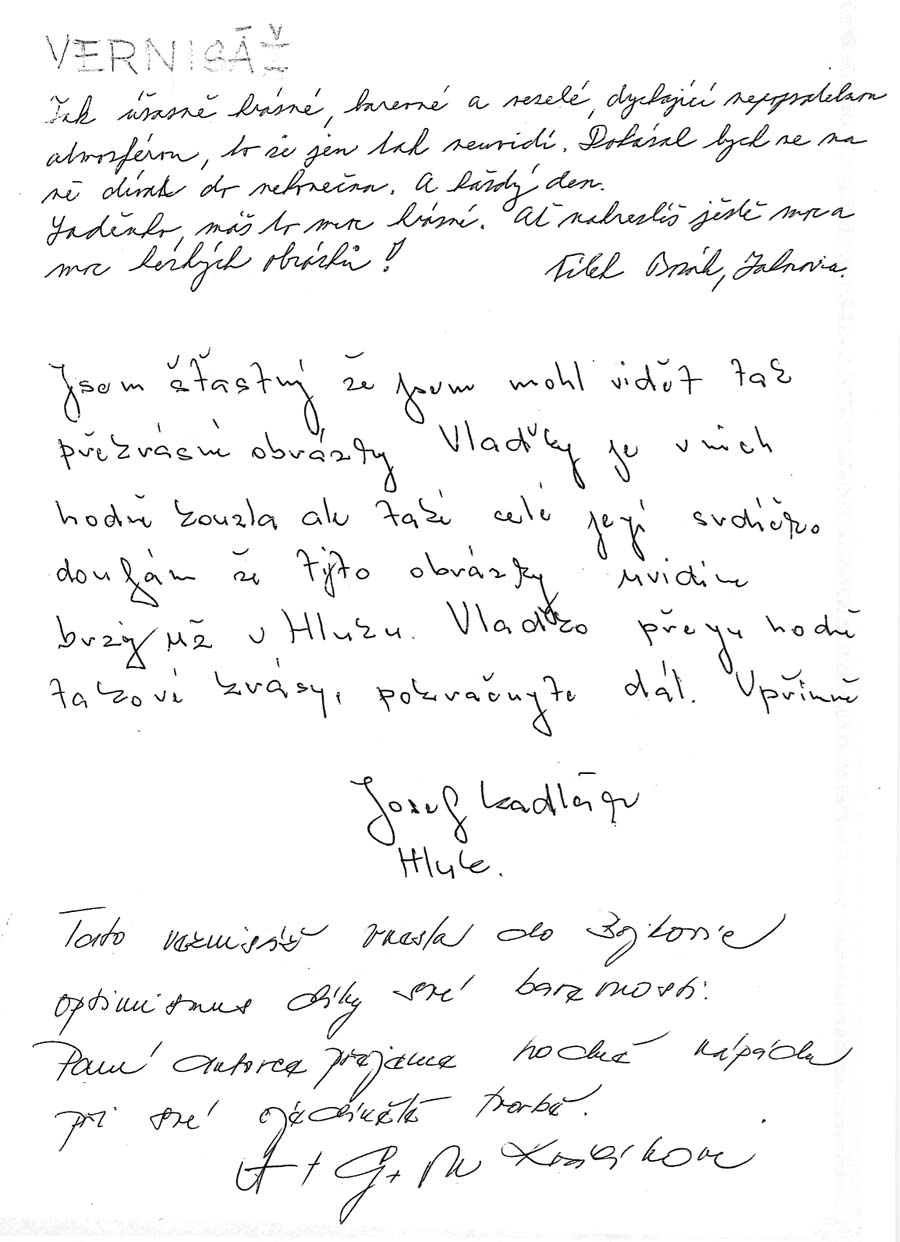 VERNISÁŽ
Tak úžasně krásné, barevné a veselé, dýchající nepopsatelnou
atmosférou, to se jen tak neuvidí. Dokázal bych se na
ně dívat do nekonečna. A každý den.
máš to moc krásné. Ať nakreslíš ještě moc a
moc hezkých obrázků!
Jsem šťastný že jsem mohl vidět tak
překrásné obrázky Vlaďky je v nich
hodně kouzla ale také celé její srdíčko
doufám že tyto obrázky uvidíme
brzy už v Hluku. Vlaďko přeju hodně
takové krásy, pokračujte dál. Upřímně
Josef
Hluk.
Tato vernisáž vnesla do Bojkovic
optimismus díky své barevnosti.
Paní autorce přejeme hodně nápadů
při své ojedinělé tvorbě.
A + G + M